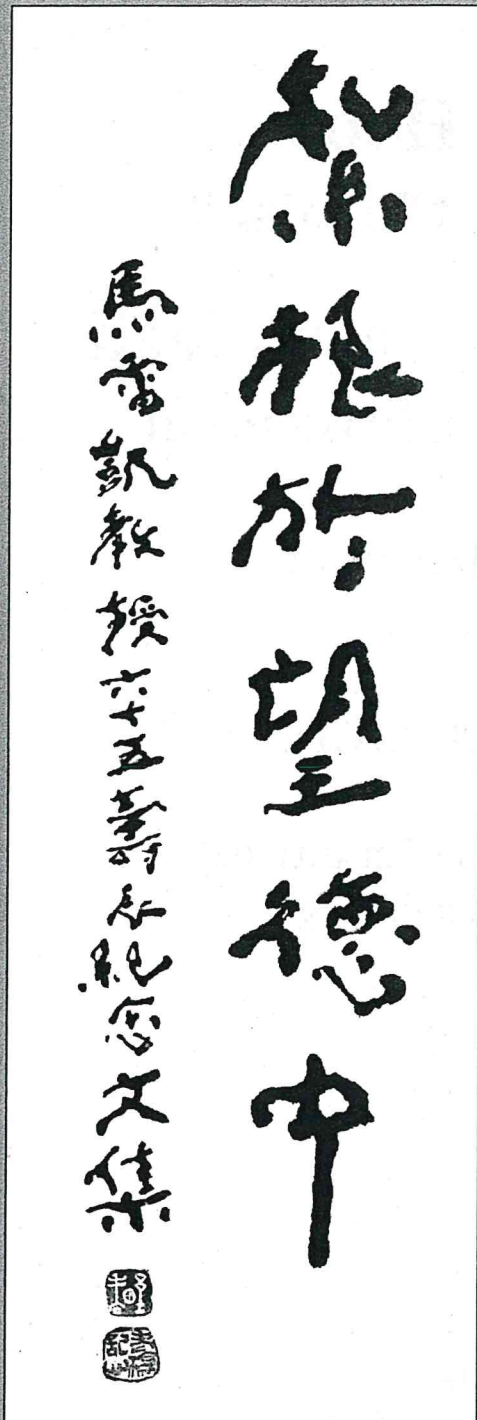 紮根於望德中
馬雷凱教授六十五壽辰紀念文集